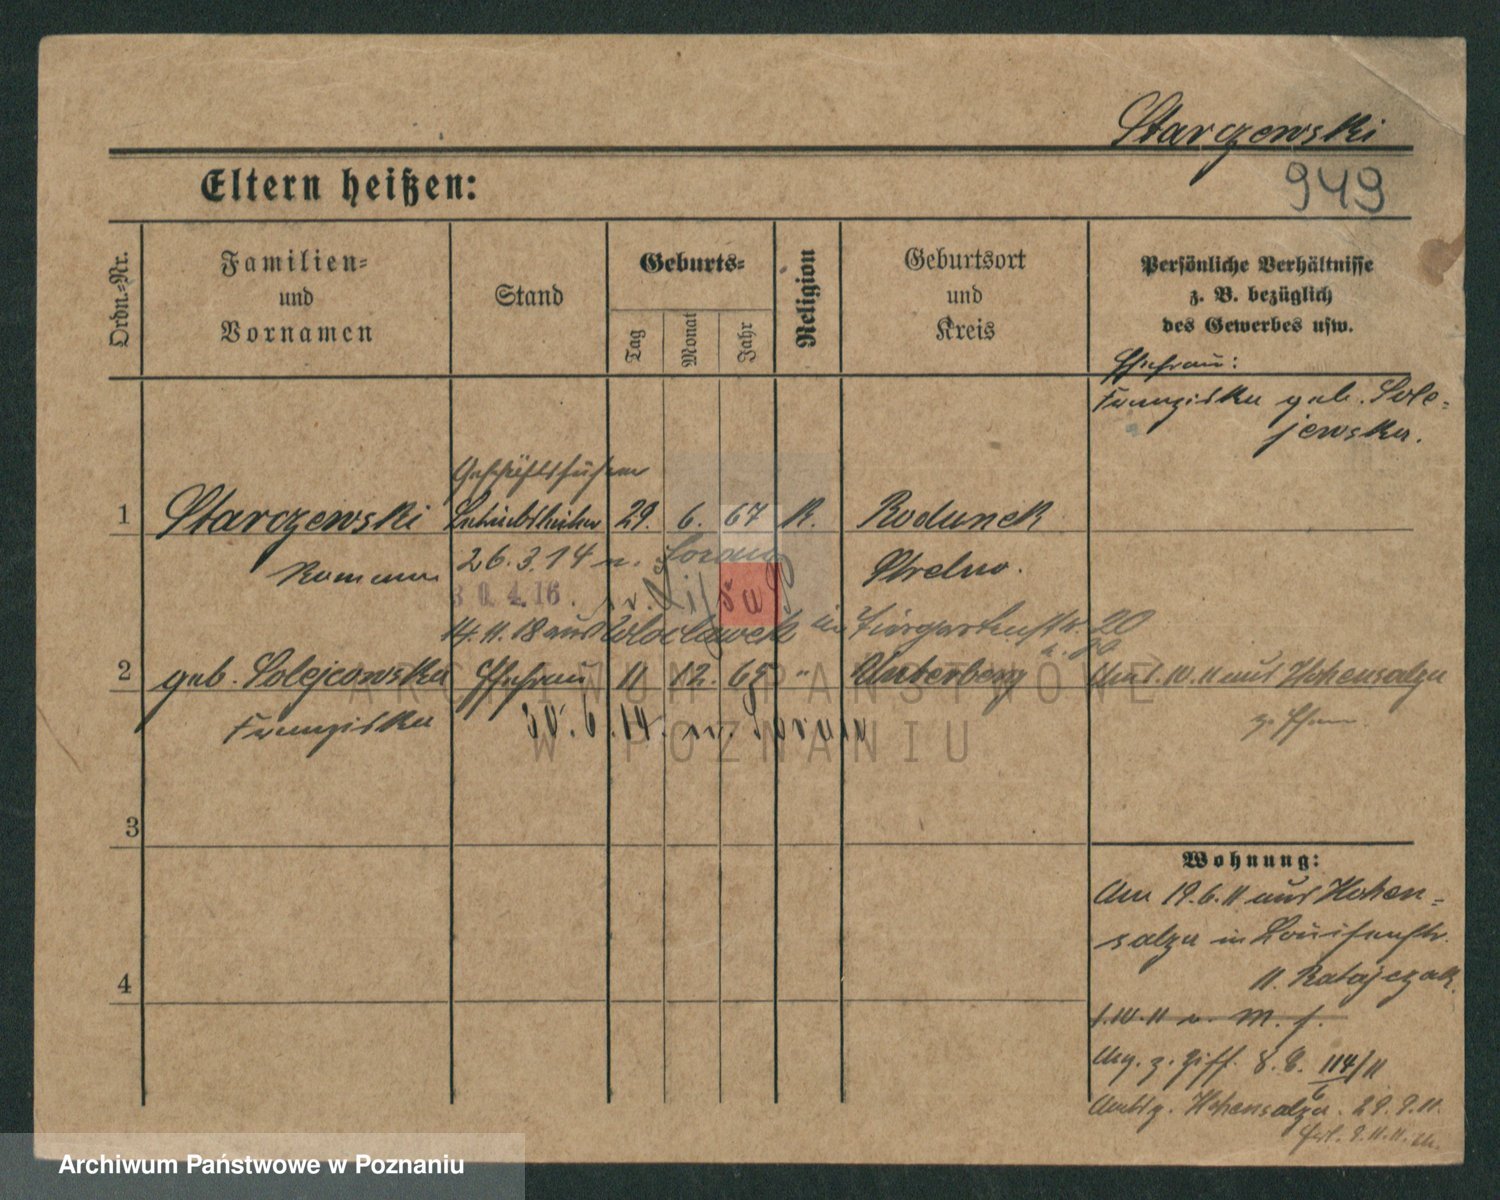 Starczewski
949
Eltern heißen:
Ordn.-Nr.
Familien-
und
Vornamen
Stand
Geburts-
Tag
Monat
Jahr
Religion
Geburtsort
und
Kreis
Persönliche Verhältnisse
z. B. bezüglich
des Gewerbes usw.
Ehefrau:
Franziska geb. Sole-
jewska.
Geschäftsführer
1 Starczewski 29. 6. 67 K. Rodunek
Roman 26.3.14 n. Sorau Strelno.
30.4.16.
14.11.18 aus Wloclawek in Tiergartenstr. 20
2 geb. Solejewska Ehefrau 11 12. 65 " Unterberg Am 1.10.11 aus Hohensalza
Franziska 30.6.14. n. Sorau
3
4
Wohnung:
Am 19.6.11 aus Hohen-
salza in Louisenstr.
11. Ratajczak.
1.10.11 n. M. f.
Ang. z. Ziff. 8. 6. 114/11
Hohensalza. 29.9.11.
9.11.11.
ARCHIWUM PAŃSTWOWE
W POZNANIU
Archiwum Państwowe w Poznaniu